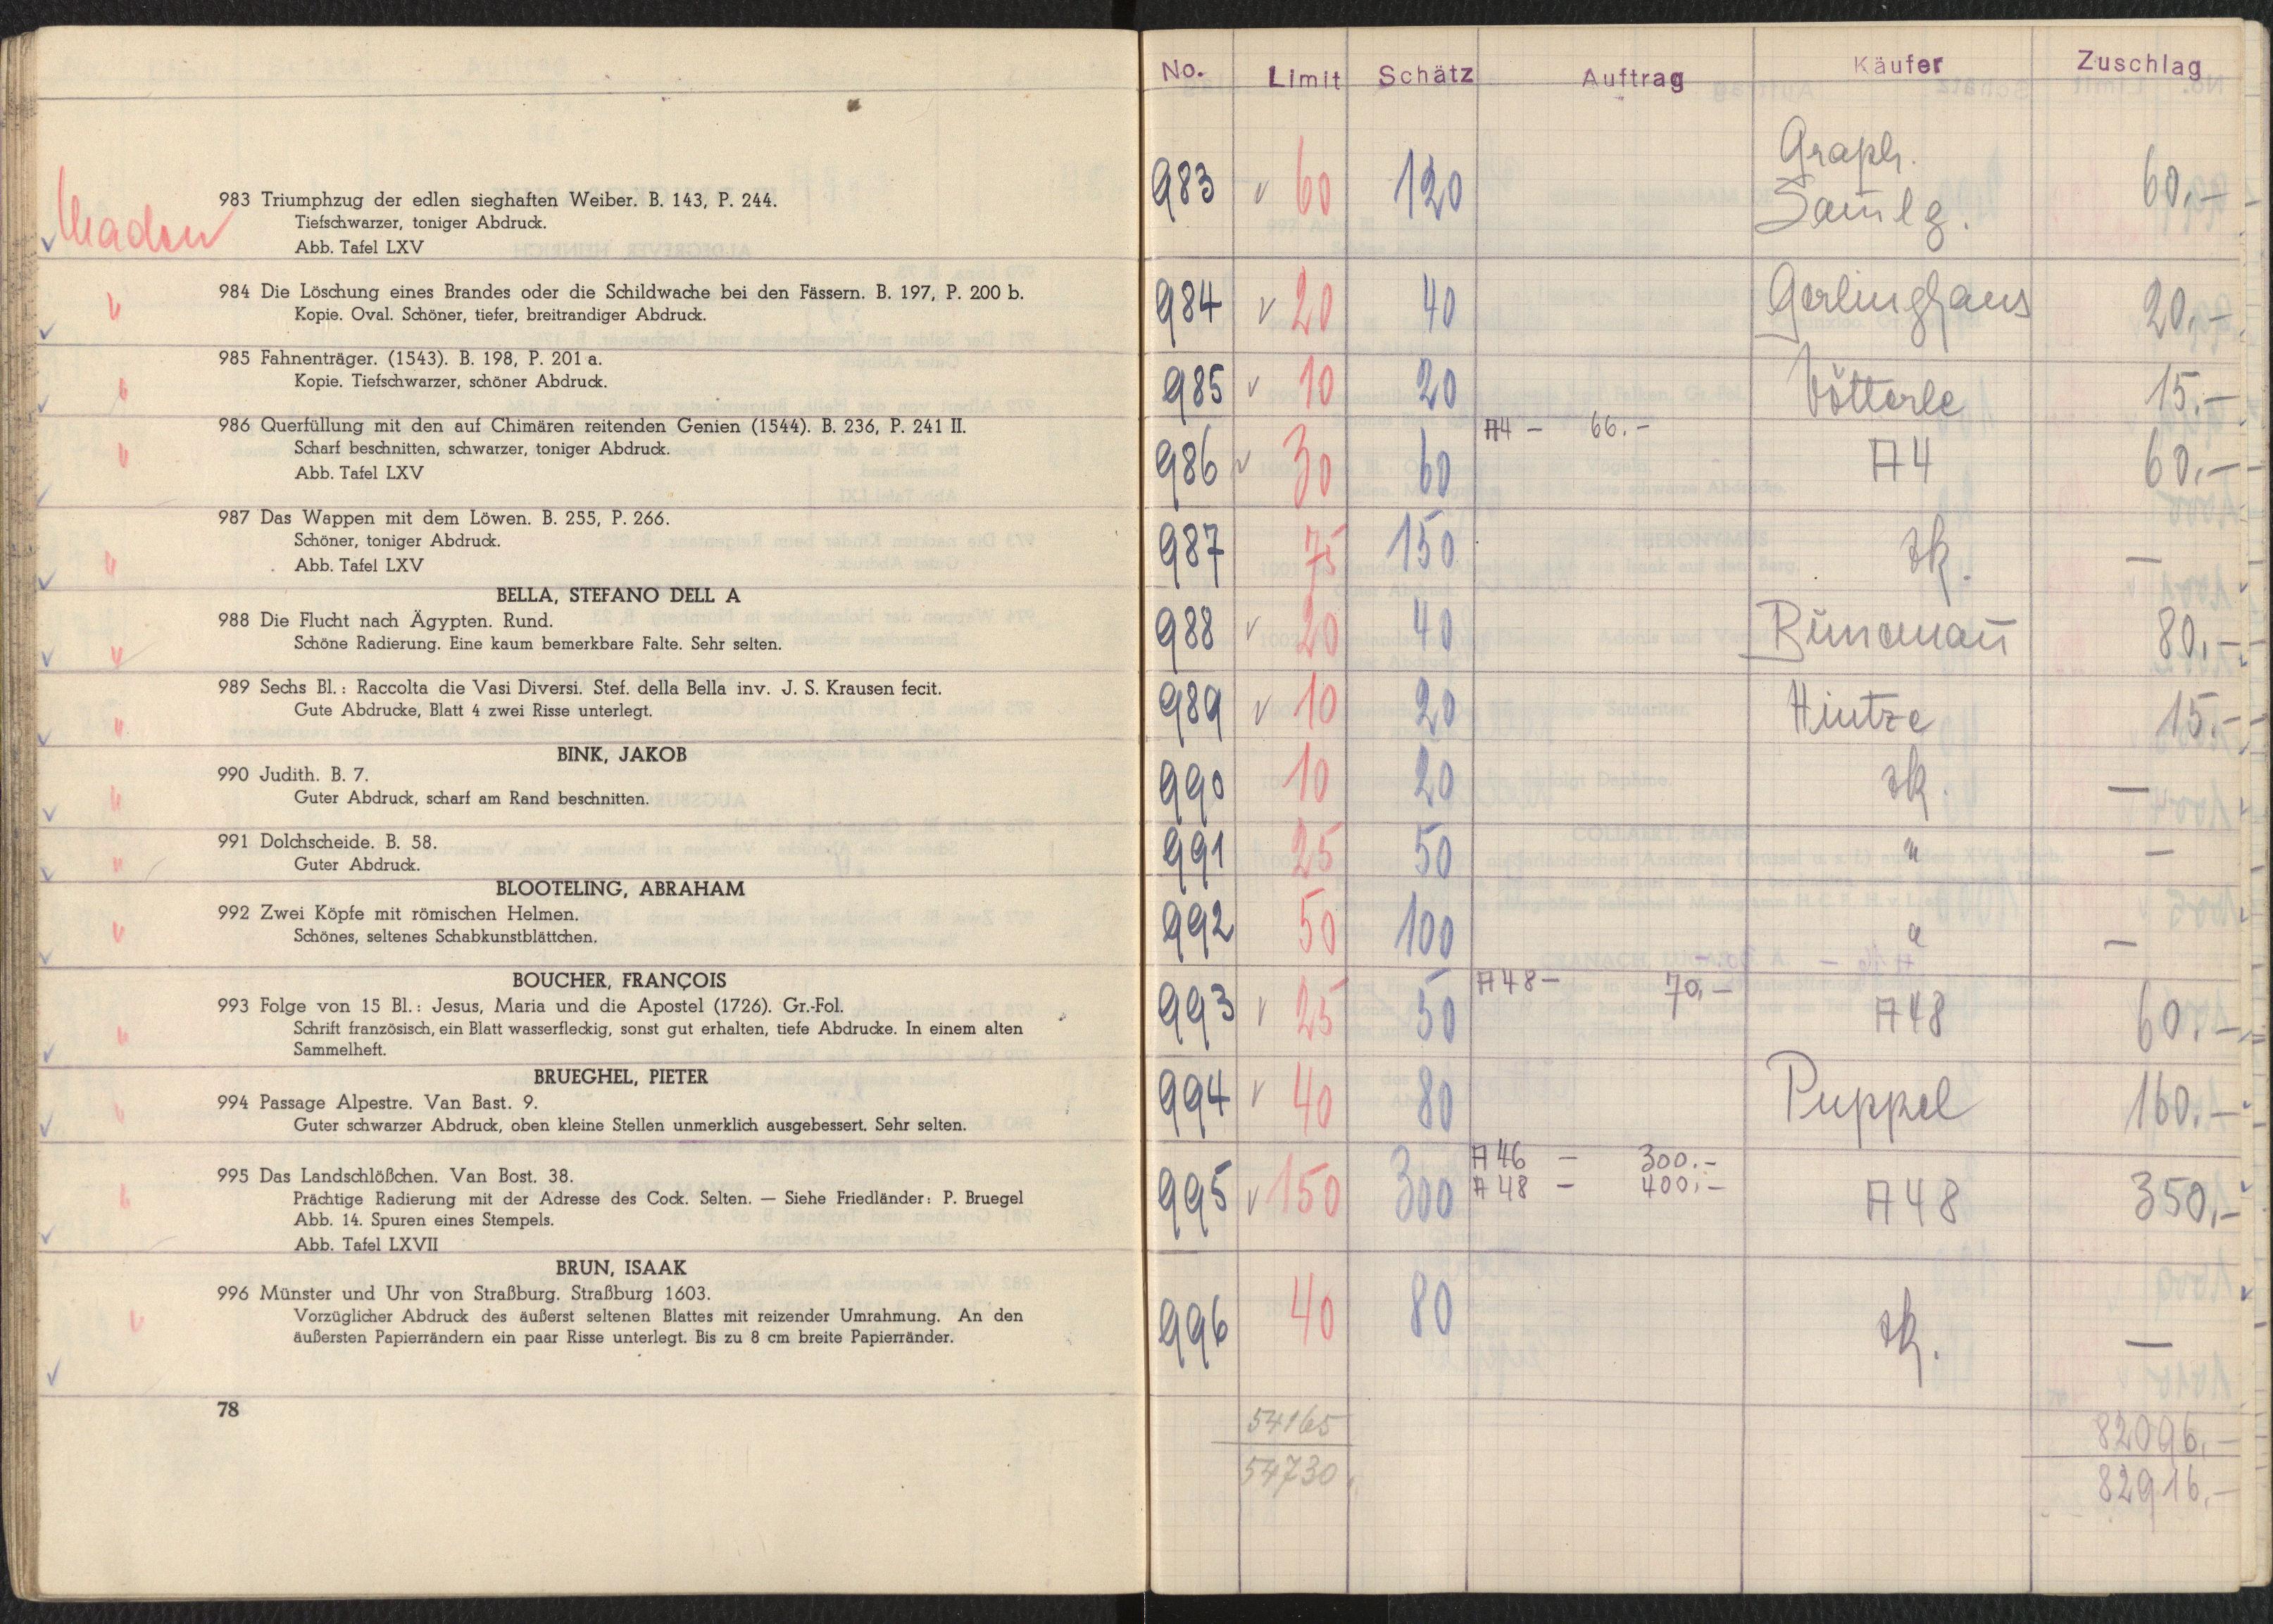 Maden
983 Triumphzug der edlen sieghaften Weiber. B. 143, P. 244.
Tiefschwarzer, toniger Abdruck.
Abb. Tafel LXV
984 Die Löschung eines Brandes oder die Schildwache bei den Fässern. B. 197, P. 200 b.
Kopie. Oval. Schöner, tiefer, breitrandiger Abdruck.
985 Fahnenträger. (1543). B. 198, P. 201 a.
Kopie. Tiefschwarzer, schöner Abdruck.
986 Querfüllung mit den auf Chimären reitenden Genien (1544). B. 236, P. 241 II.
Scharf beschnitten, schwarzer, toniger Abdruck.
Abb. Tafel LXV
987 Das Wappen mit dem Löwen. B. 255, P. 266.
Schöner, toniger Abdruck.
Abb. Tafel LXV
BELLA, STEFANO DELL A
988 Die Flucht nach Ägypten. Rund.
Schöne Radierung. Eine kaum bemerkbare Falte. Sehr selten.
989 Sechs Bl.: Raccolta die Vasi Diversi. Stef. della Bella inv. J. S. Krausen fecit.
Gute Abdrucke, Blatt 4 zwei Risse unterlegt.
BINK, JAKOB
990 Judith. B. 7.
Guter Abdruck, scharf am Rand beschnitten.
991 Dolchscheide. B. 58.
Guter Abdruck.
BLOOTELING, ABRAHAM
992 Zwei Köpfe mit römischen Helmen.
Schönes, seltenes Schabkunstblättchen.
BOUCHER, FRANÇOIS
993 Folge von 15 Bl.: Jesus, Maria und die Apostel (1726). Gr.-Fol.
Schrift französisch, ein Blatt wasserfleckig, sonst gut erhalten, tiefe Abdrucke. In einem alten
Sammelheft.
BRUEGHEL, PIETER
994 Passage Alpestre. Van Bast. 9.
Guter schwarzer Abdruck, oben kleine Stellen unmerklich ausgebessert. Sehr selten.
995 Das Landschlößchen. Van Bost. 38.
Prächtige Radierung mit der Adresse des Cock. Selten. — Siehe Friedländer: P. Bruegel
Abb. 14. Spuren eines Stempels.
Abb. Tafel LXVII
BRUN, ISAAK
996 Münster und Uhr von Straßburg. Straßburg 1603.
Vorzüglicher Abdruck des äußerst seltenen Blattes mit reizender Umrahmung. An den
äußersten Papierrändern ein paar Risse unterlegt. Bis zu 8 cm breite Papierränder.
78
No. Limit Schätz Auftrag Käufer Zuschlag
Graph.
983 v 60 120 Sam̄lg. 60,-
984 v 20 40 Gerlinghaus 20,-
985 v 10 20 Vötterle 15,-
A4 - 66.-
986 v 30 60 A4 60,-
987 75 150 zk. —
988 v 20 40 80,-
989 v 10 20 Hintze 15,-
990 10 20 zk. —
991 25 50 " —
992 50 100 " —
A48 - 70,-
993 v 25 50 A48 60,-
994 v 40 80 Puppel 160,-
A46 - 300.-
A48 - 400,-
995 v 150 300 A48 350,-
996 40 80 zk. —
54165 82096,-
54730 82916,-